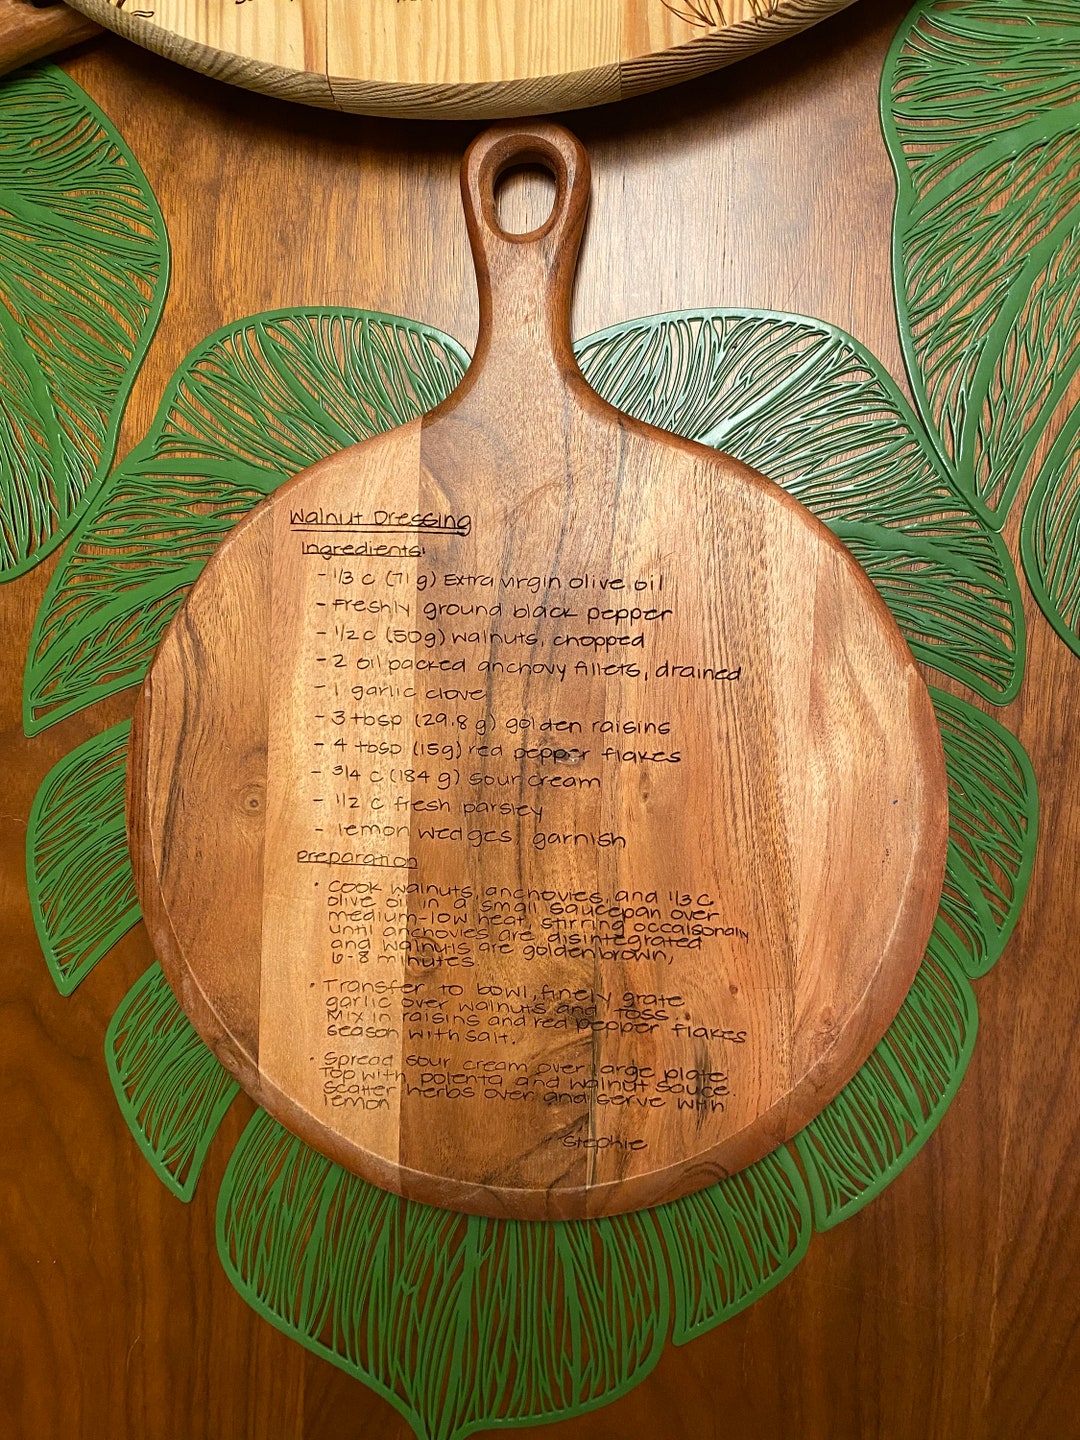 Walnut Dressing
Ingredients:
- 1/3 c (71 g) Extra virgin olive oil
- Freshly ground black pepper
- 1/2 c (50g) walnuts, chopped
- 2 oil packed anchovy fillets, drained
- 1 garlic clove
- 3 tbsp (29.8 g) golden raisins
- 4 tbsp (15g) red pepper flakes
- 3/4 c (184 g) sour cream
- 1/2 c fresh parsley
- lemon wedges, garnish
Preparation
• Cook walnuts, anchovies, and 1/3 c
olive oil in a small saucepan over
medium-low heat, stirring occaisonally
until anchovies are disintegrated
and walnuts are golden brown,
6-8 minutes.
• Transfer to bowl, finely grate
garlic over walnuts and toss.
Mix in raisins and red pepper flakes
season with salt.
• Spread sour cream over large plate
Top with polenta and walnut sauce.
Scatter herbs over and serve with
lemon
Stephie